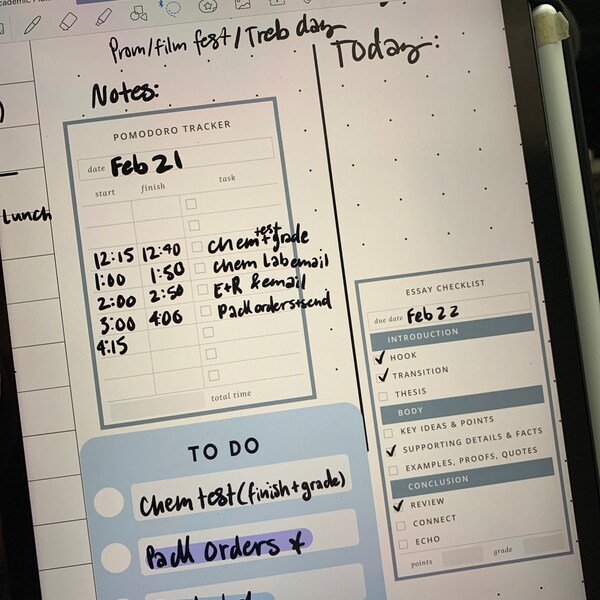 Prom/film fest/Treb day
Today:
Notes:
POMODORO TRACKER
date Feb 21
start finish task
Lunch
12:15 12:40 chem test+grade
1:00 1:50 chem Lab email
2:00 2:50 E+R & email
3:00 4:00 Pack orders+send
4:15
total time
TO DO
Chem test (finish+grade)
Pack orders *
ESSAY CHECKLIST
due date Feb 22
INTRODUCTION
HOOK
TRANSITION
THESIS
BODY
KEY IDEAS & POINTS
SUPPORTING DETAILS & FACTS
EXAMPLES, PROOFS, QUOTES
CONCLUSION
REVIEW
CONNECT
ECHO
points grade